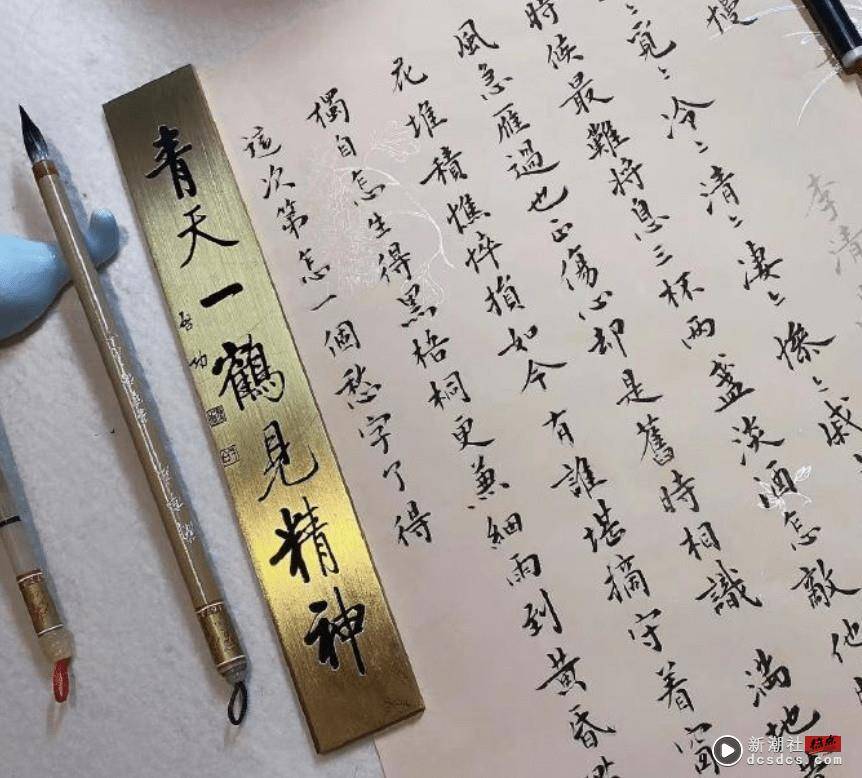 李清
慢
〻覓〻冷〻清〻凄〻慘〻戚
時候最難將息三杯兩盞淡酒怎敵他
風急雁過也正傷心却是舊時相識 滿地
花堆積憔悴損如今有誰堪摘守着窗
獨自怎生得黑梧桐更兼細雨到黃昏
這次第怎一個愁字了得
青天一鶴見精神
启功
新潮社
dcsdcs.com